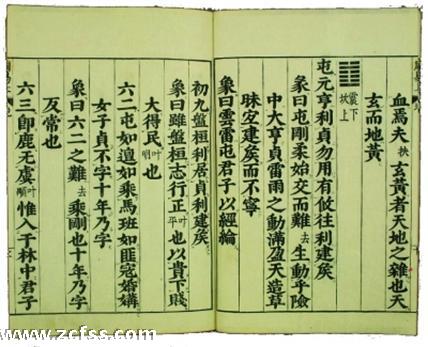 血焉夫扶玄黃者天地之雜也天
玄而地黃
䷂ 震下坎上
屯元亨利貞勿用有攸往利建矦
彖曰屯剛柔始交而難去生動乎險
中大亨貞雷雨之動滿盈天造草
昧宜建矦而不寧
象曰雲雷屯君子以經綸
初九盤桓利居貞利建矦
象曰雖盤桓志行正叶平也以貴下賤
大得民叶明也
六二屯如邅如乘馬班如匪寇婚媾
女子貞不字十年乃字
象曰六二之難去乘剛也十年乃字
反常也
六三即鹿无虞惟入于林中君子
www.zcfss.com